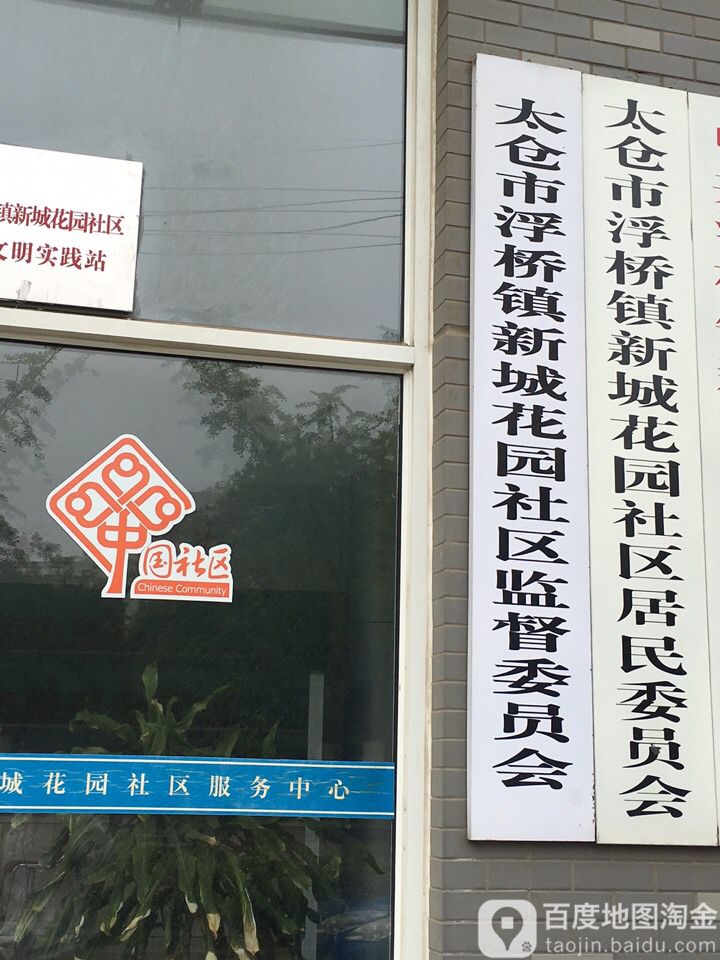 镇新城花园社区
文明实践站
中国社区
Chinese Community
城花园社区服务中心
太仓市浮桥镇新城花园社区监督委员会
太仓市浮桥镇新城花园社区居民委员会
百度地图淘金
taojin.baidu.com